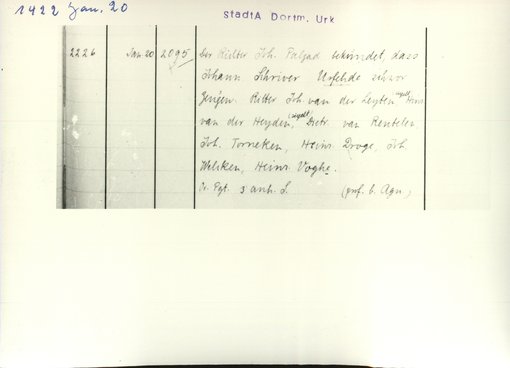 1422 Jan. 20
StadtA Dortm. Urk
2226 Jan. 20 2095 Der Richter Joh. Palsad bekundet, dass
Johann Schriver Urfehde schwor
Zeugen: Ritter Joh. van der Leyten,
van der Heyden, Dietr. van Rentelen,
Joh. Torneken, Heinr. Droge, Joh
Welsken, Heinr. Voghe.
Or. Pgt. 3 anh. S. (prof. b. Agn.)